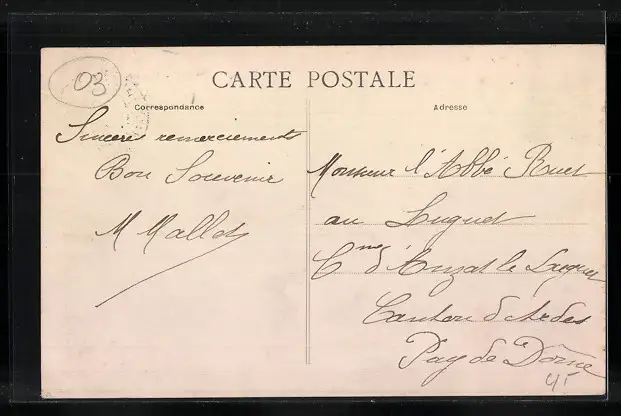 03
CARTE POSTALE
Correspondance
Adresse
Sincères remerciements
Bon Souvenir
M Mallet
Monsieur l'Abbé Ruet
au Luguet
Cne d'Anzat le Luguet
Canton d'Ardes
Puy de Dôme